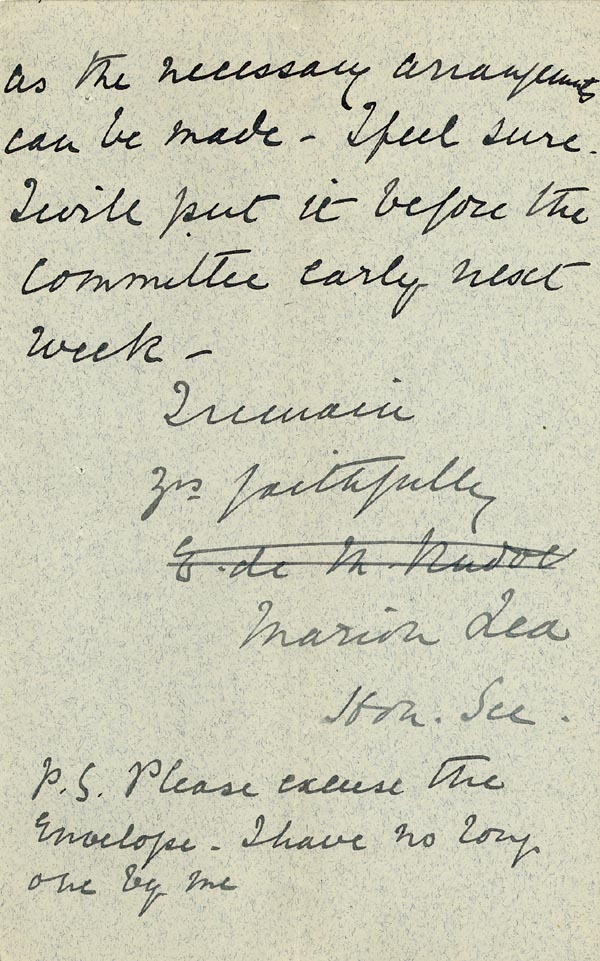 as the necessary arrangements
can be made - I feel sure.
I will put it before the
committee early next
week -
I remain
Yrs faithfully
E. de M. Rudolf
Marion Lea
Hon. Sec.
P.S. Please excuse the
Envelope - I have no long
one by me